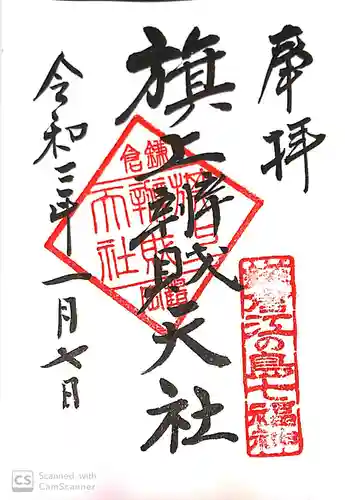 奉拝
旗上弁財天社
令和三年一月七日
鎌倉
鎌倉江の島七福神
CS Scanned with
CamScanner